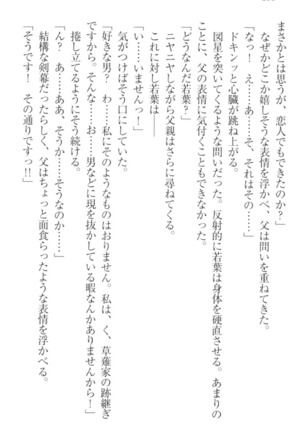 まさかとは思うが、恋人でもできたのか？」
なぜかどこか嬉しそうな表情を浮かべ、父は問いを重ねてきた。
「なっ！　え……あ……そ、それはその……」
ドキンッと心臓が跳ね上がる。
図星を突いてくるような問いだった。反射的に若葉は身体を硬直させる。あまりの
ことに、父の表情に気付くこともできなかった。
「どうなんだ若葉？」
ニヤニヤしながら父親はさらに尋ねてくる。
これに対し若葉は――
「い……いませんっ！」
気がつけばそう口にしていた。
「好きな男？　わ……私にそのようなものはおりません。私は、く、草薙家の跡継ぎ
ですから。そんな……お……男などに現を抜かしている暇なんかありませんから！」
捲し立てるようにそう続ける。
「ん？　あ……ああ、そうか……そうなのか……」
結構な剣幕だったらしく、父はちょっと面食らったような表情を浮かべる。
「そうです！　その通りですっ!!」